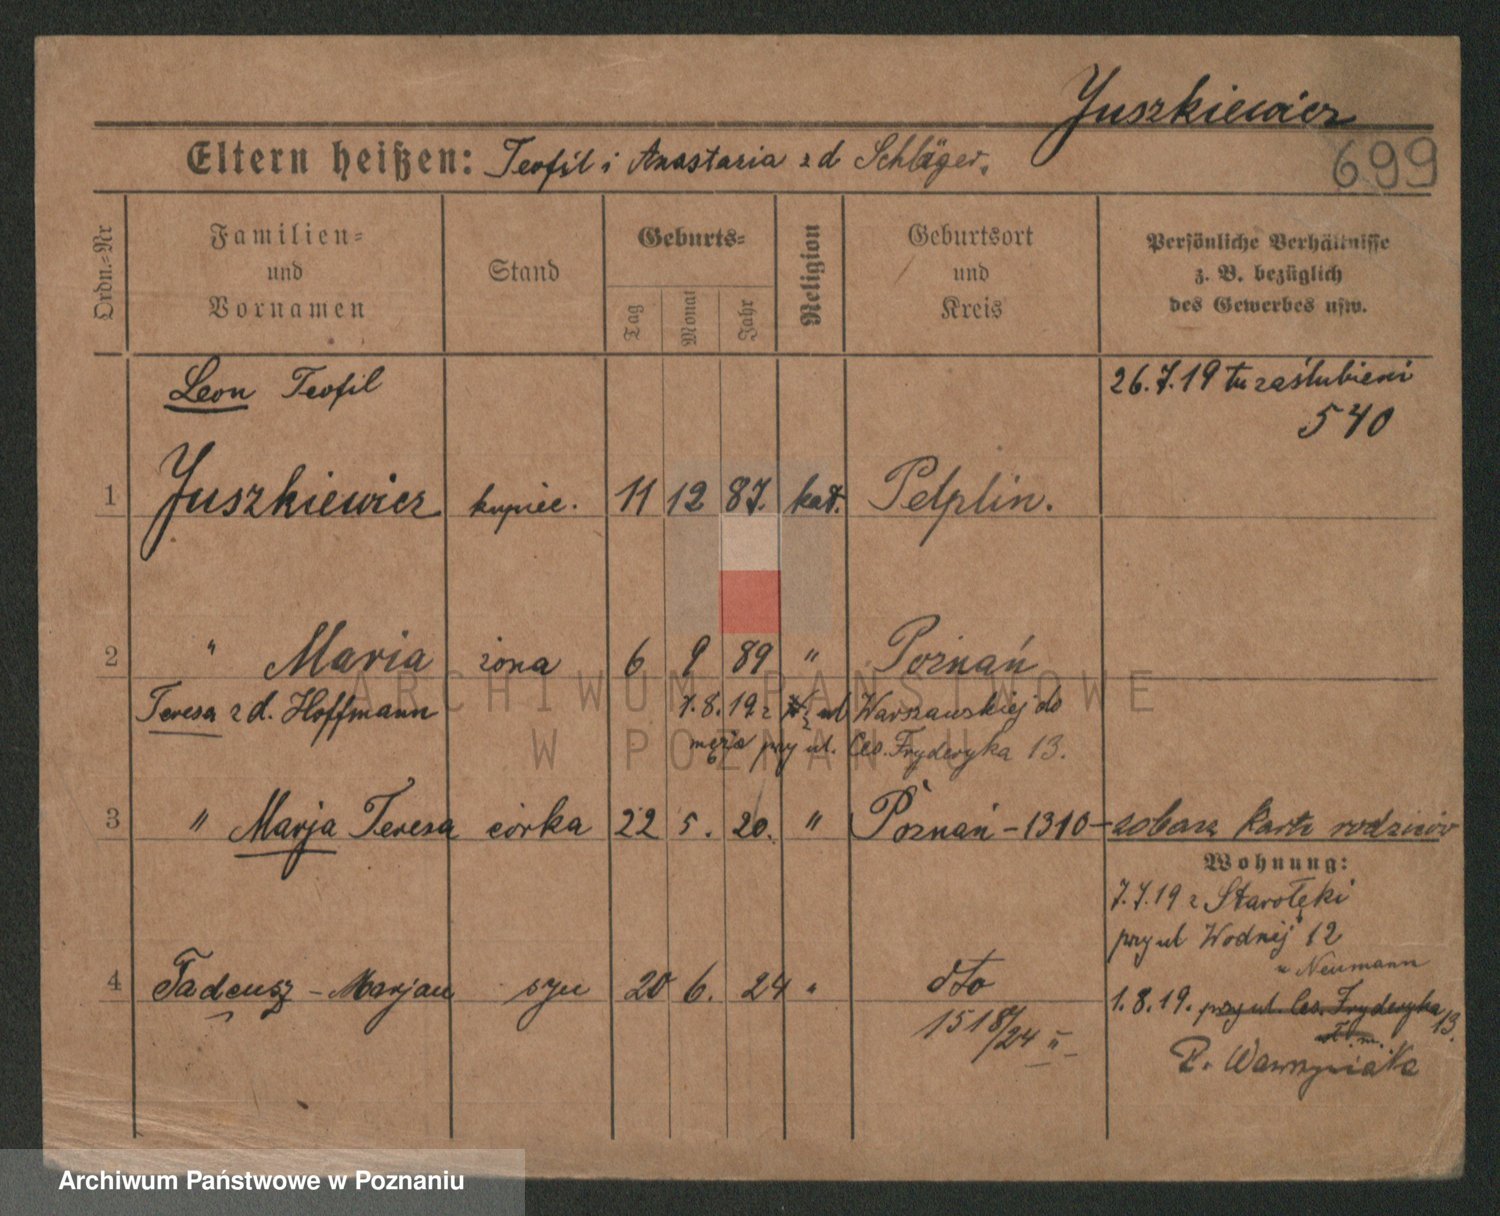 Juszkiewicz
699
Eltern heißen: Teofil i Anastazia z d Schläger.
Ordn.=Nr
Familien= und Vornamen
Stand
Geburts=
Tag
Monat
Jahr
Religion
Geburtsort und Kreis
Persönliche Verhältnisse
z. B. bezüglich
des Gewerbes usw.
Leon Teofil
26.7.19 tu zaślubieni
540
1 Juszkiewicz kupiec. 11 12 87. kat. Pelplin.
2 " Maria żona 6 9 89 " Poznań
Teresa z d. Hoffmann
1.8.19 z ul Warszawskiej do
męża przy ul. Ces. Fryderyka 13.
3 " Marja Teresa córka 22 5. 20. " Poznań - 1310 - zobacz
Wohnung:
7.7.19 z Starołęki
przy ul Wodnej 12
u Neumann
4 Tadeusz - Marjan syn 20 6. 24 " dto
1518/24 II
1.8.19. przy ul. Ces. Fryderyka 13.
P. Wawrzyniaka
ARCHIWUM PAŃSTWOWE
W POZNANIU
Archiwum Państwowe w Poznaniu